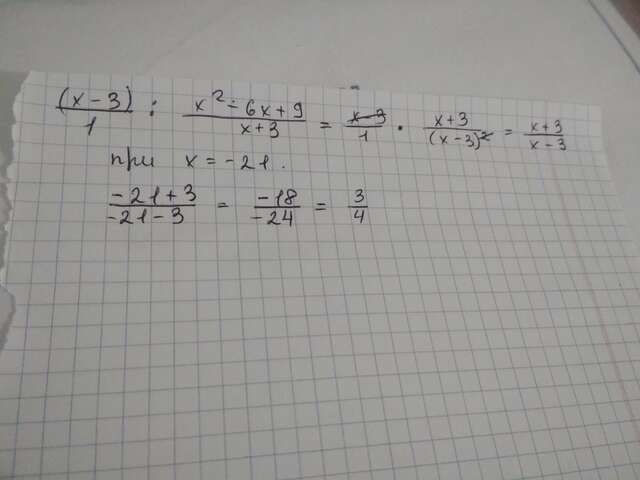 (x-3)/1 : x²-6x+9/x+3 = x-3/1 · x+3/(x-3)² = x+3/x-3
при x=-21.
-21+3/-21-3 = -18/-24 = 3/4